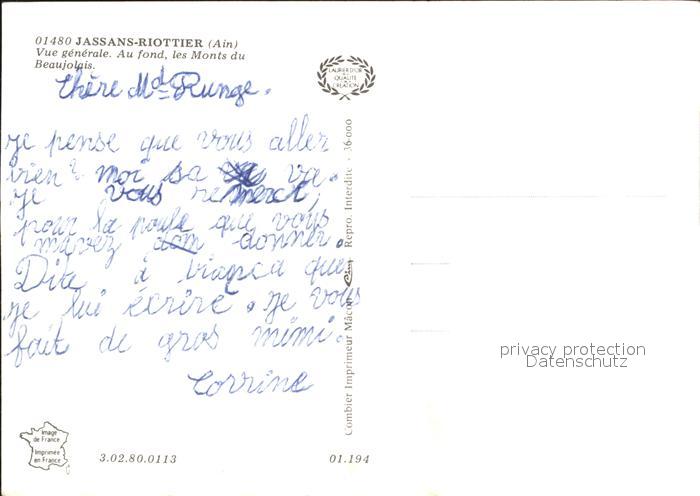 01480 JASSANS-RIOTTIER (Ain)
Vue générale. Au fond, les Monts du
Beaujolais.
LAURIER D'OR
DE LA
QUALITÉ
CRÉATION
Chère Md Runge.
je pense que vous aller
bien ? moi sa va.
je vous remerci,
pour la poule que vous
mavez donner.
Dite à bianca que
je lui écrire. je vous
fait de gros mimi.
Corrine
Combier Imprimeur Mâcon Cim Repro. Interdite - 36 000
privacy protection
Datenschutz
Image
de France
Imprimée
en France
3.02.80.0113
01.194